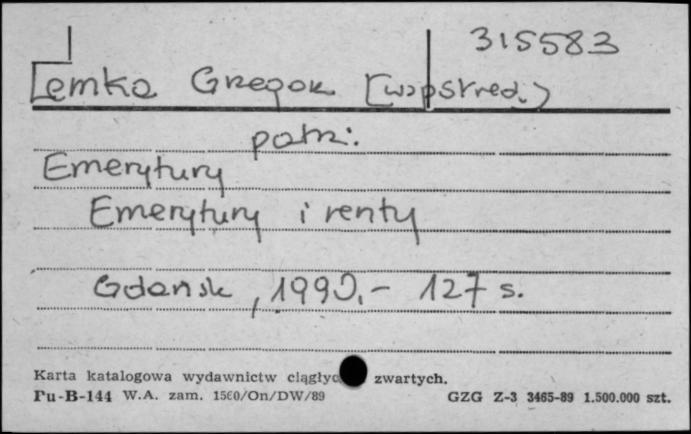 315583
Lemka Grzegorz (współred.)
patrz:
Emerytury
Emerytury i renty
Gdańsk, 1990. - 127 s.
Karta katalogowa wydawnictw zwartych.
Pu-B-144 W.A. zam. 1560/On/DW/89
GZG Z-3 3465-89 1.500.000 szt.